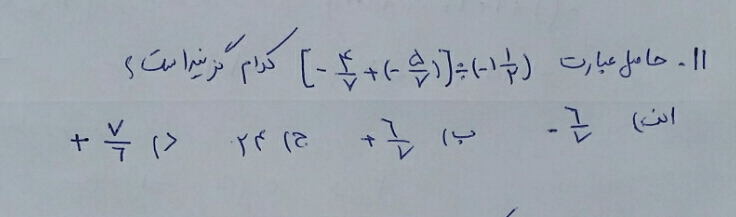 ۱۱. حاصل عبارت [-۴/۷+(-۵/۷)]÷(-۱ ۱/۲) کدام گزینه است؟
الف) -۶/۷ ب) +۶/۷ ج) ۲۴ د) +۷/۶